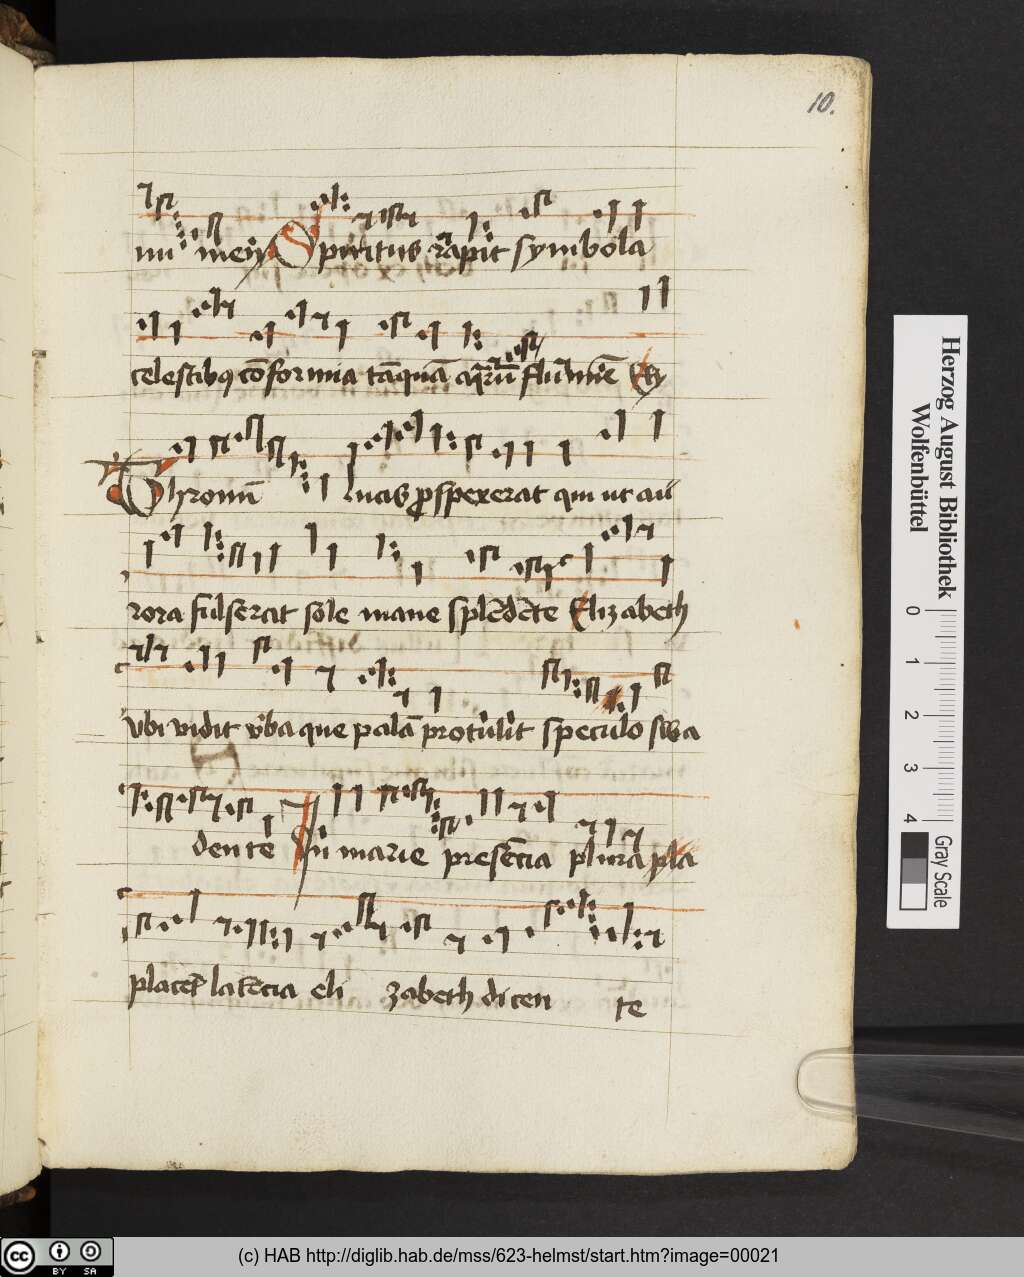 10.
nu mei Spiritus rapit symbola
celestibꝯ cōformia tāquā aq̄rū flumīe Ely
Thronū lucas ꝓspexerat qui ut au
rora fulserat sole mane splēdēte Elizabeth
ubi vidit v̓ba que palā protulit speculo sua
dente In marie presēcia plura pla
placet latēcia eli zabeth dicen te
Herzog August Bibliothek
Wolfenbüttel
0 1 2 3 4
Gray Scale
cc BY SA
(c) HAB http://diglib.hab.de/mss/623-helmst/start.htm?image=00021